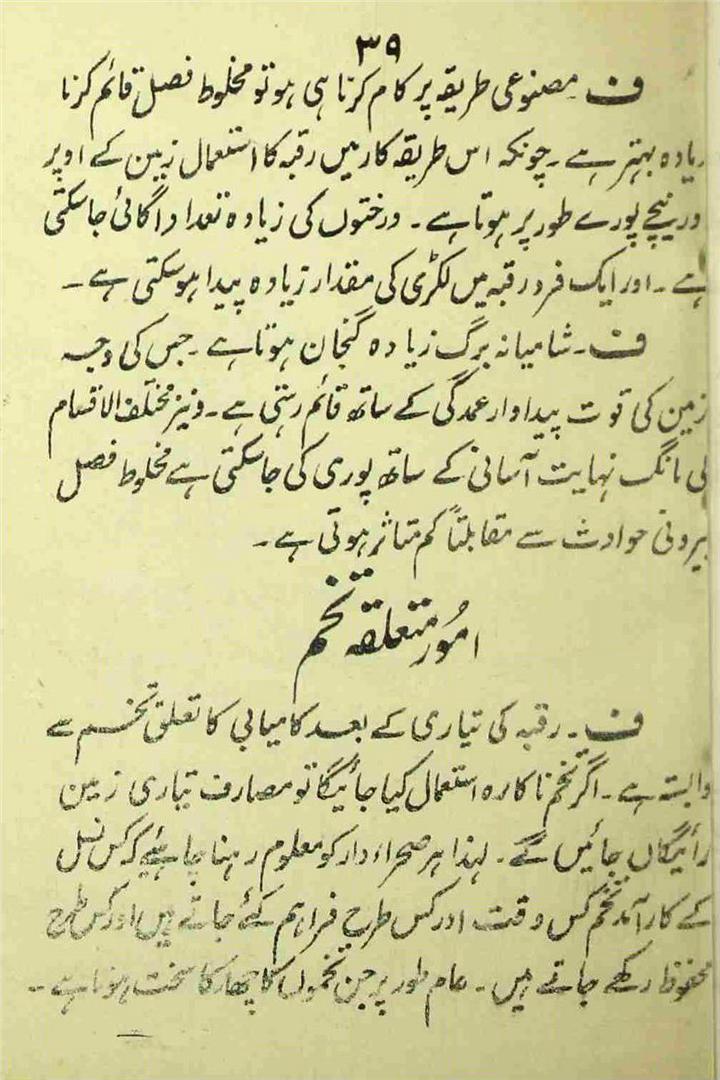 ۳۹
ف۔ مصنوعی طریقہ پر کام کرنا ہی ہو تو مخلوط فصل قائم کرنا
زیادہ بہتر ہے۔ چونکہ اس طریقہ کار میں رقبہ کا استعمال زمین کے اوپر
ور نیچے پورے طور پر ہوتا ہے۔ درختوں کی زیادہ تعداد اگائی جاسکتی
ہے۔ اور ایک فرد رقبہ میں لکڑی کی مقدار زیادہ پیدا ہوسکتی ہے۔
ف۔ شامیانہ برگ زیادہ گنجان ہوتا ہے۔ جس کی وجہ
زمین کی قوت پیداوار عمدگی کے ساتھ قائم رہتی ہے۔ ونیز مختلف الاقسام
کی مانگ نہایت آسانی کے ساتھ پوری کی جاسکتی ہے مخلوط فصل
بیرونی حوادث سے مقابلتاً کم متاثر ہوتی ہے۔
امُور متعلقہ تخم
ف۔ رقبہ کی تیاری کے بعد کامیابی کا تعلق تخم سے
وابستہ ہے۔ اگر تخم ناکارہ استعمال کیا جائیگا تو مصارف تیاری زمین
رائیگاں جائیں گے۔ لہذا ہر صحراء دار کو معلوم رہنا چاہئیے کہ کس نسل
کے کارآمد تخم کس وقت اور کس طرح فراہم کئے جاتے ہیں اور کس طرح
محفوظ رکھے جاتے ہیں۔ عام طور پر جن تخموں کا چھلکا سخت ہوتا ہے۔